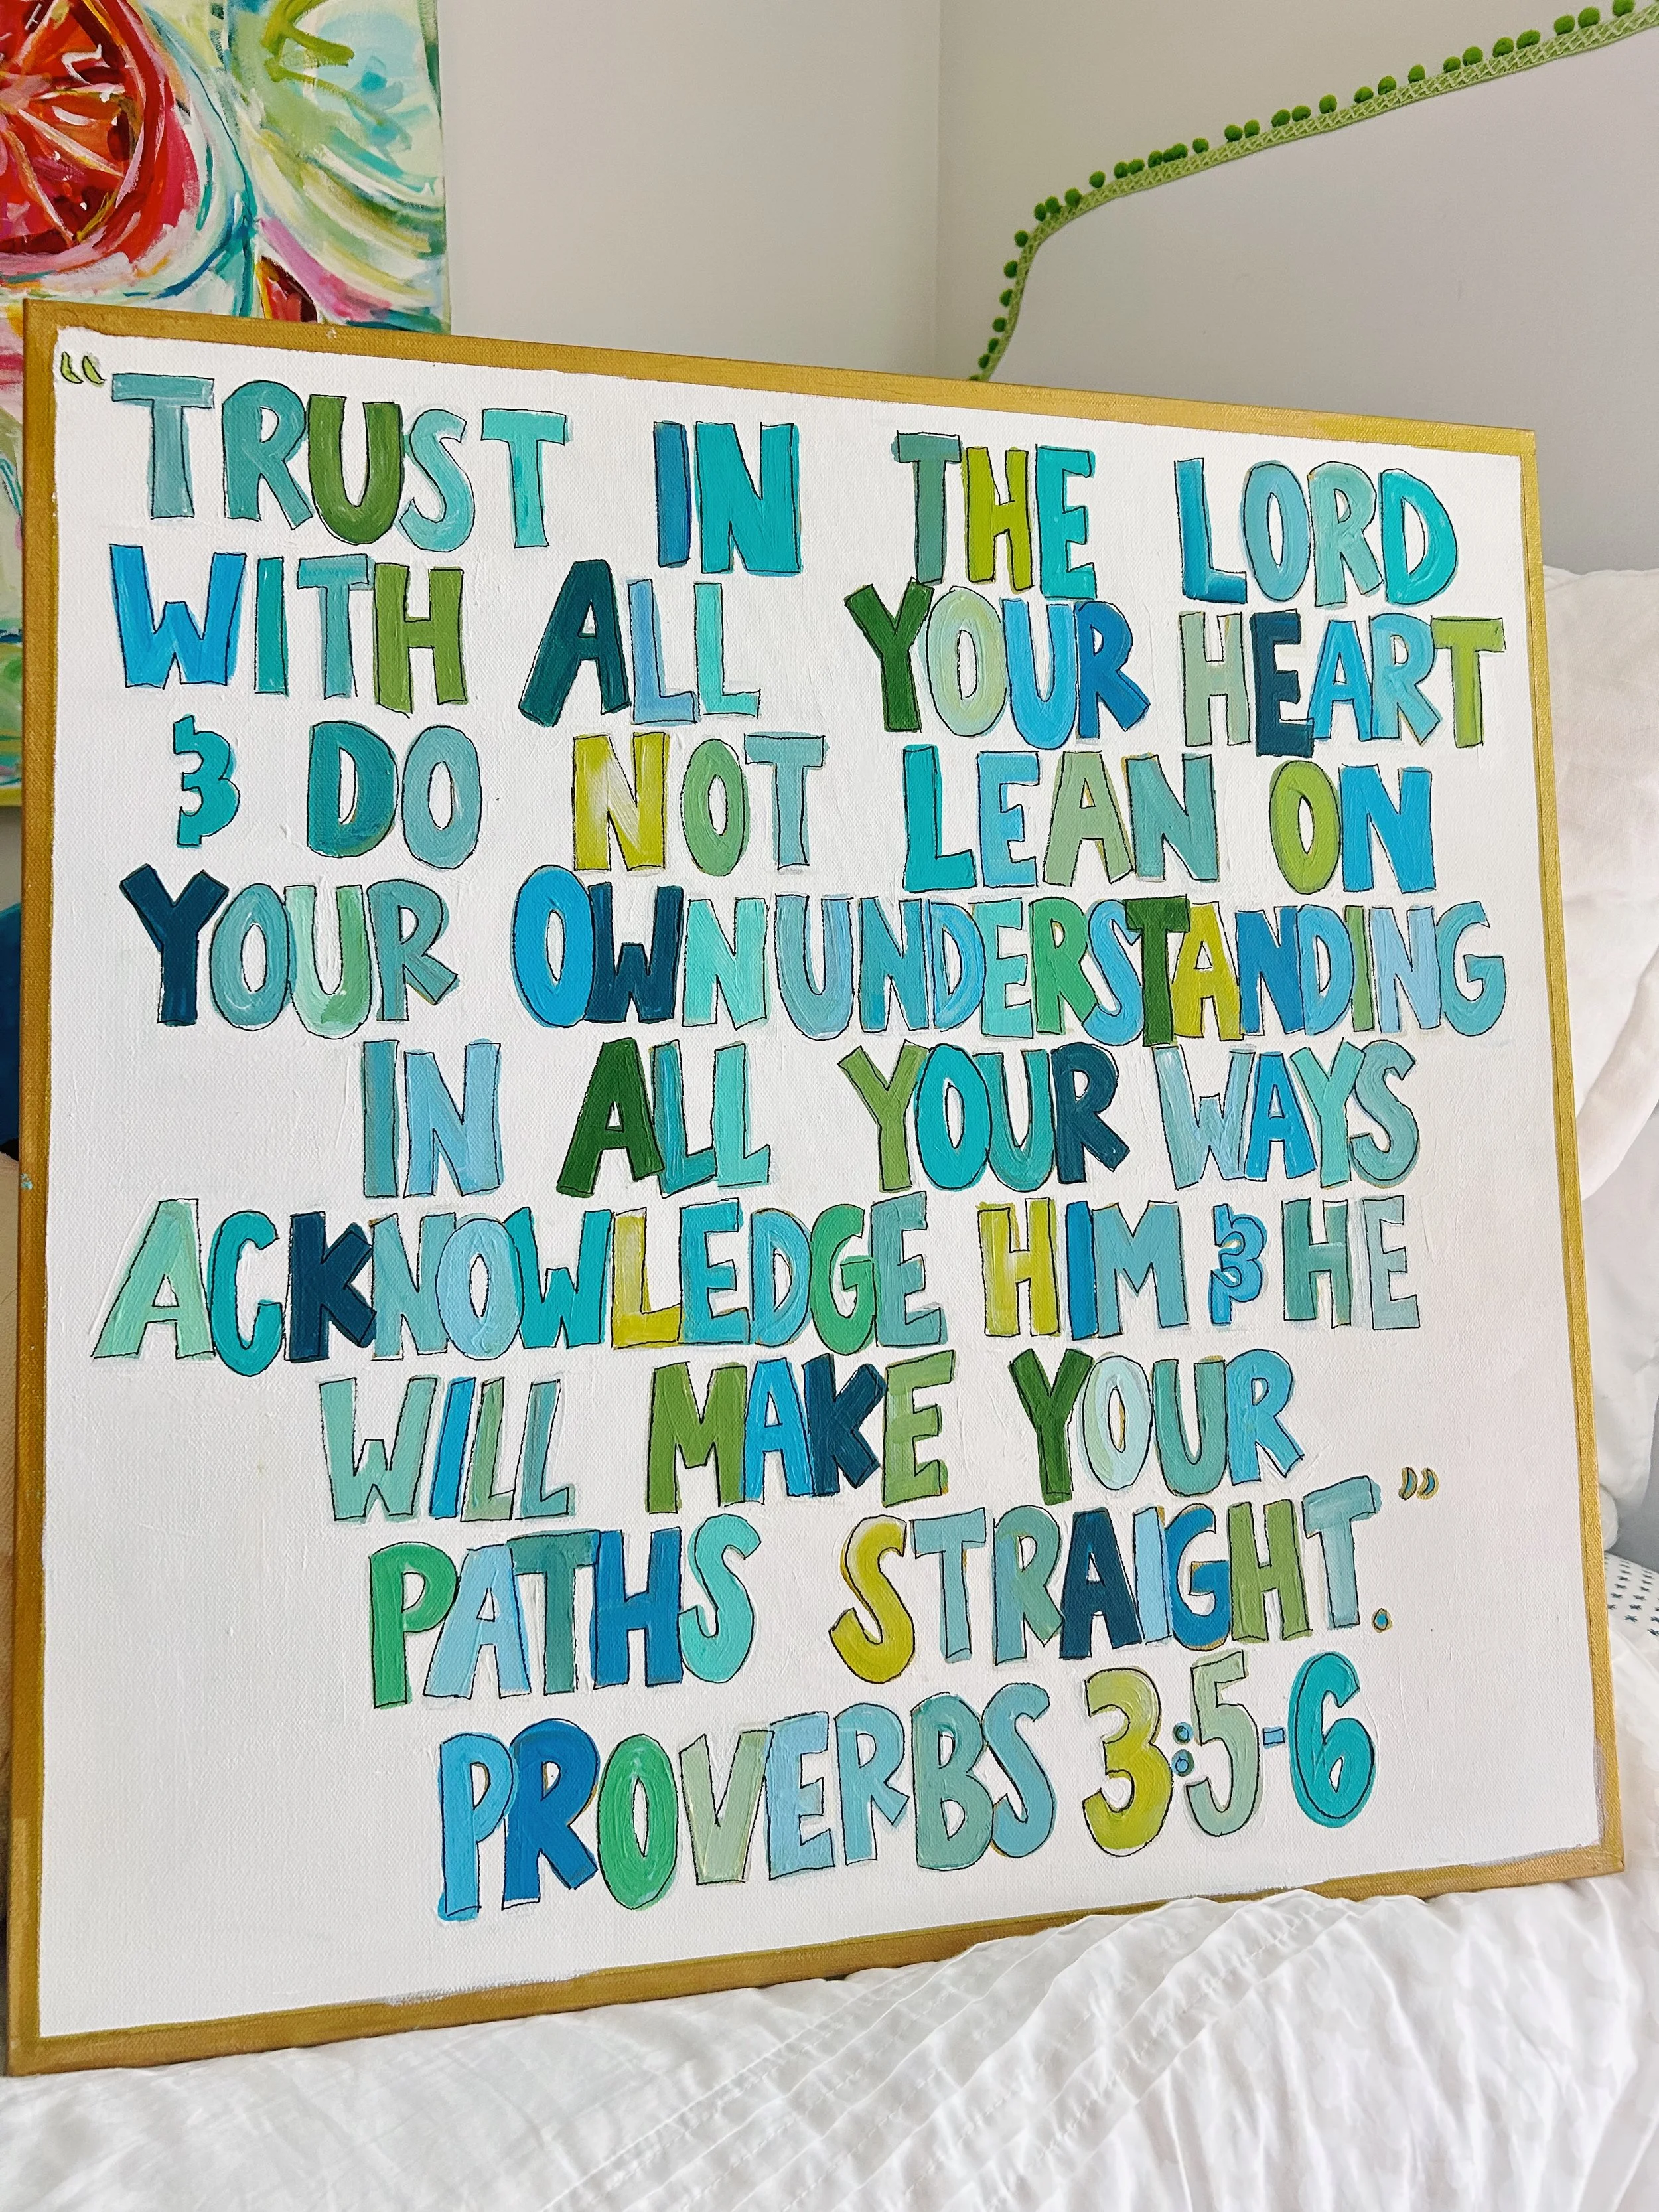 “TRUST IN THE LORD
WITH ALL YOUR HEART
& DO NOT LEAN ON
YOUR OWN UNDERSTANDING
IN ALL YOUR WAYS
ACKNOWLEDGE HIM & HE
WILL MAKE YOUR
PATHS STRAIGHT.”
PROVERBS 3:5-6